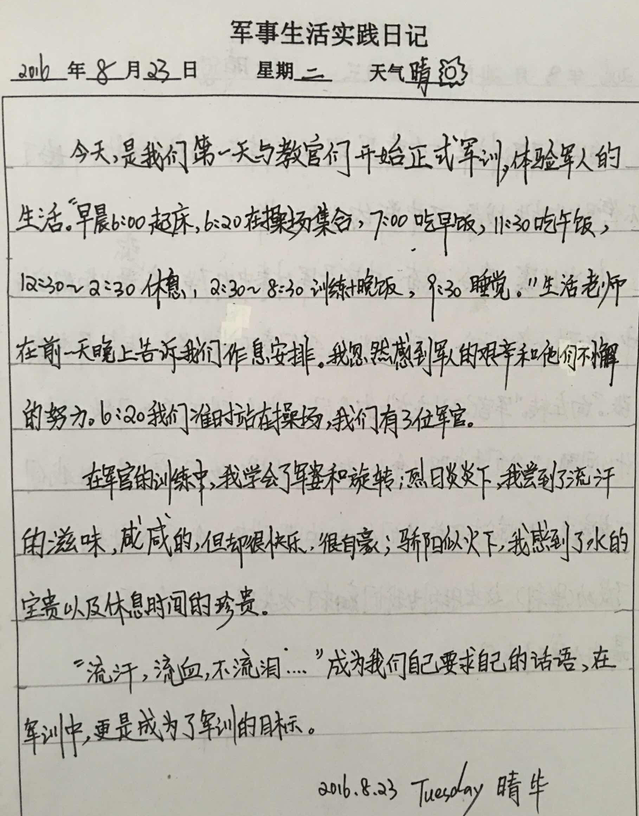 军事生活实践日记
2016 年 8 月 23 日 星期 二 天气 晴
今天,是我们第一天与教官们开始正式军训,体验军人的
生活。“早晨6:00起床,6:20在操场集合,7:00吃早饭,11:30吃午饭,
12:30~2:30休息,2:30~8:30训练+晚饭,9:30睡觉。”生活老师
在前一天晚上告诉我们作息安排。我忽然感到军人的艰辛和他们不懈
的努力。6:20我们准时站在操场,我们有3位军官。
在军官的训练中,我学会了军姿和旋转;烈日炎炎下,我尝到了流汗
的滋味,咸咸的,但却很快乐,很自豪;骄阳似火下,我感到了水的
宝贵以及休息时间的珍贵。
“流汗,流血,不流泪……”成为我们自己要求自己的话语,在
军训中,更是成为了军训的目标。
2016.8.23 Tuesday 晴